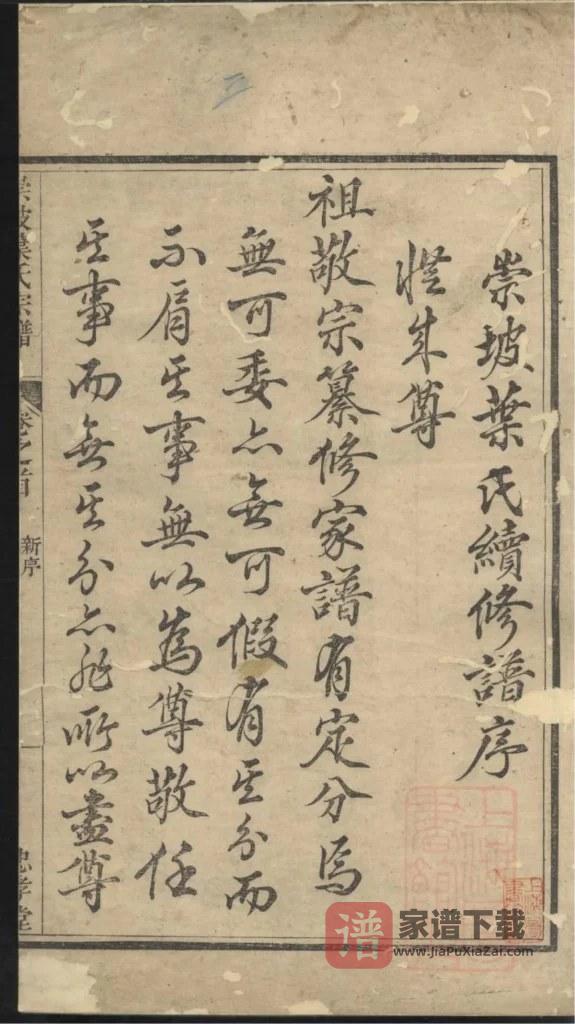 崇坡葉氏續修譜序
禮生尊
祖敬宗纂修家譜有定分焉
無可委亦無可假有其分而
不肩其事無以為尊敬任
其事而無其分亦非所以盡尊
崇坡葉氏宗譜
卷之首
新序
一
忠孝堂
上海圖書館
譜
家谱下载
www.JiaPuXiaZai.com